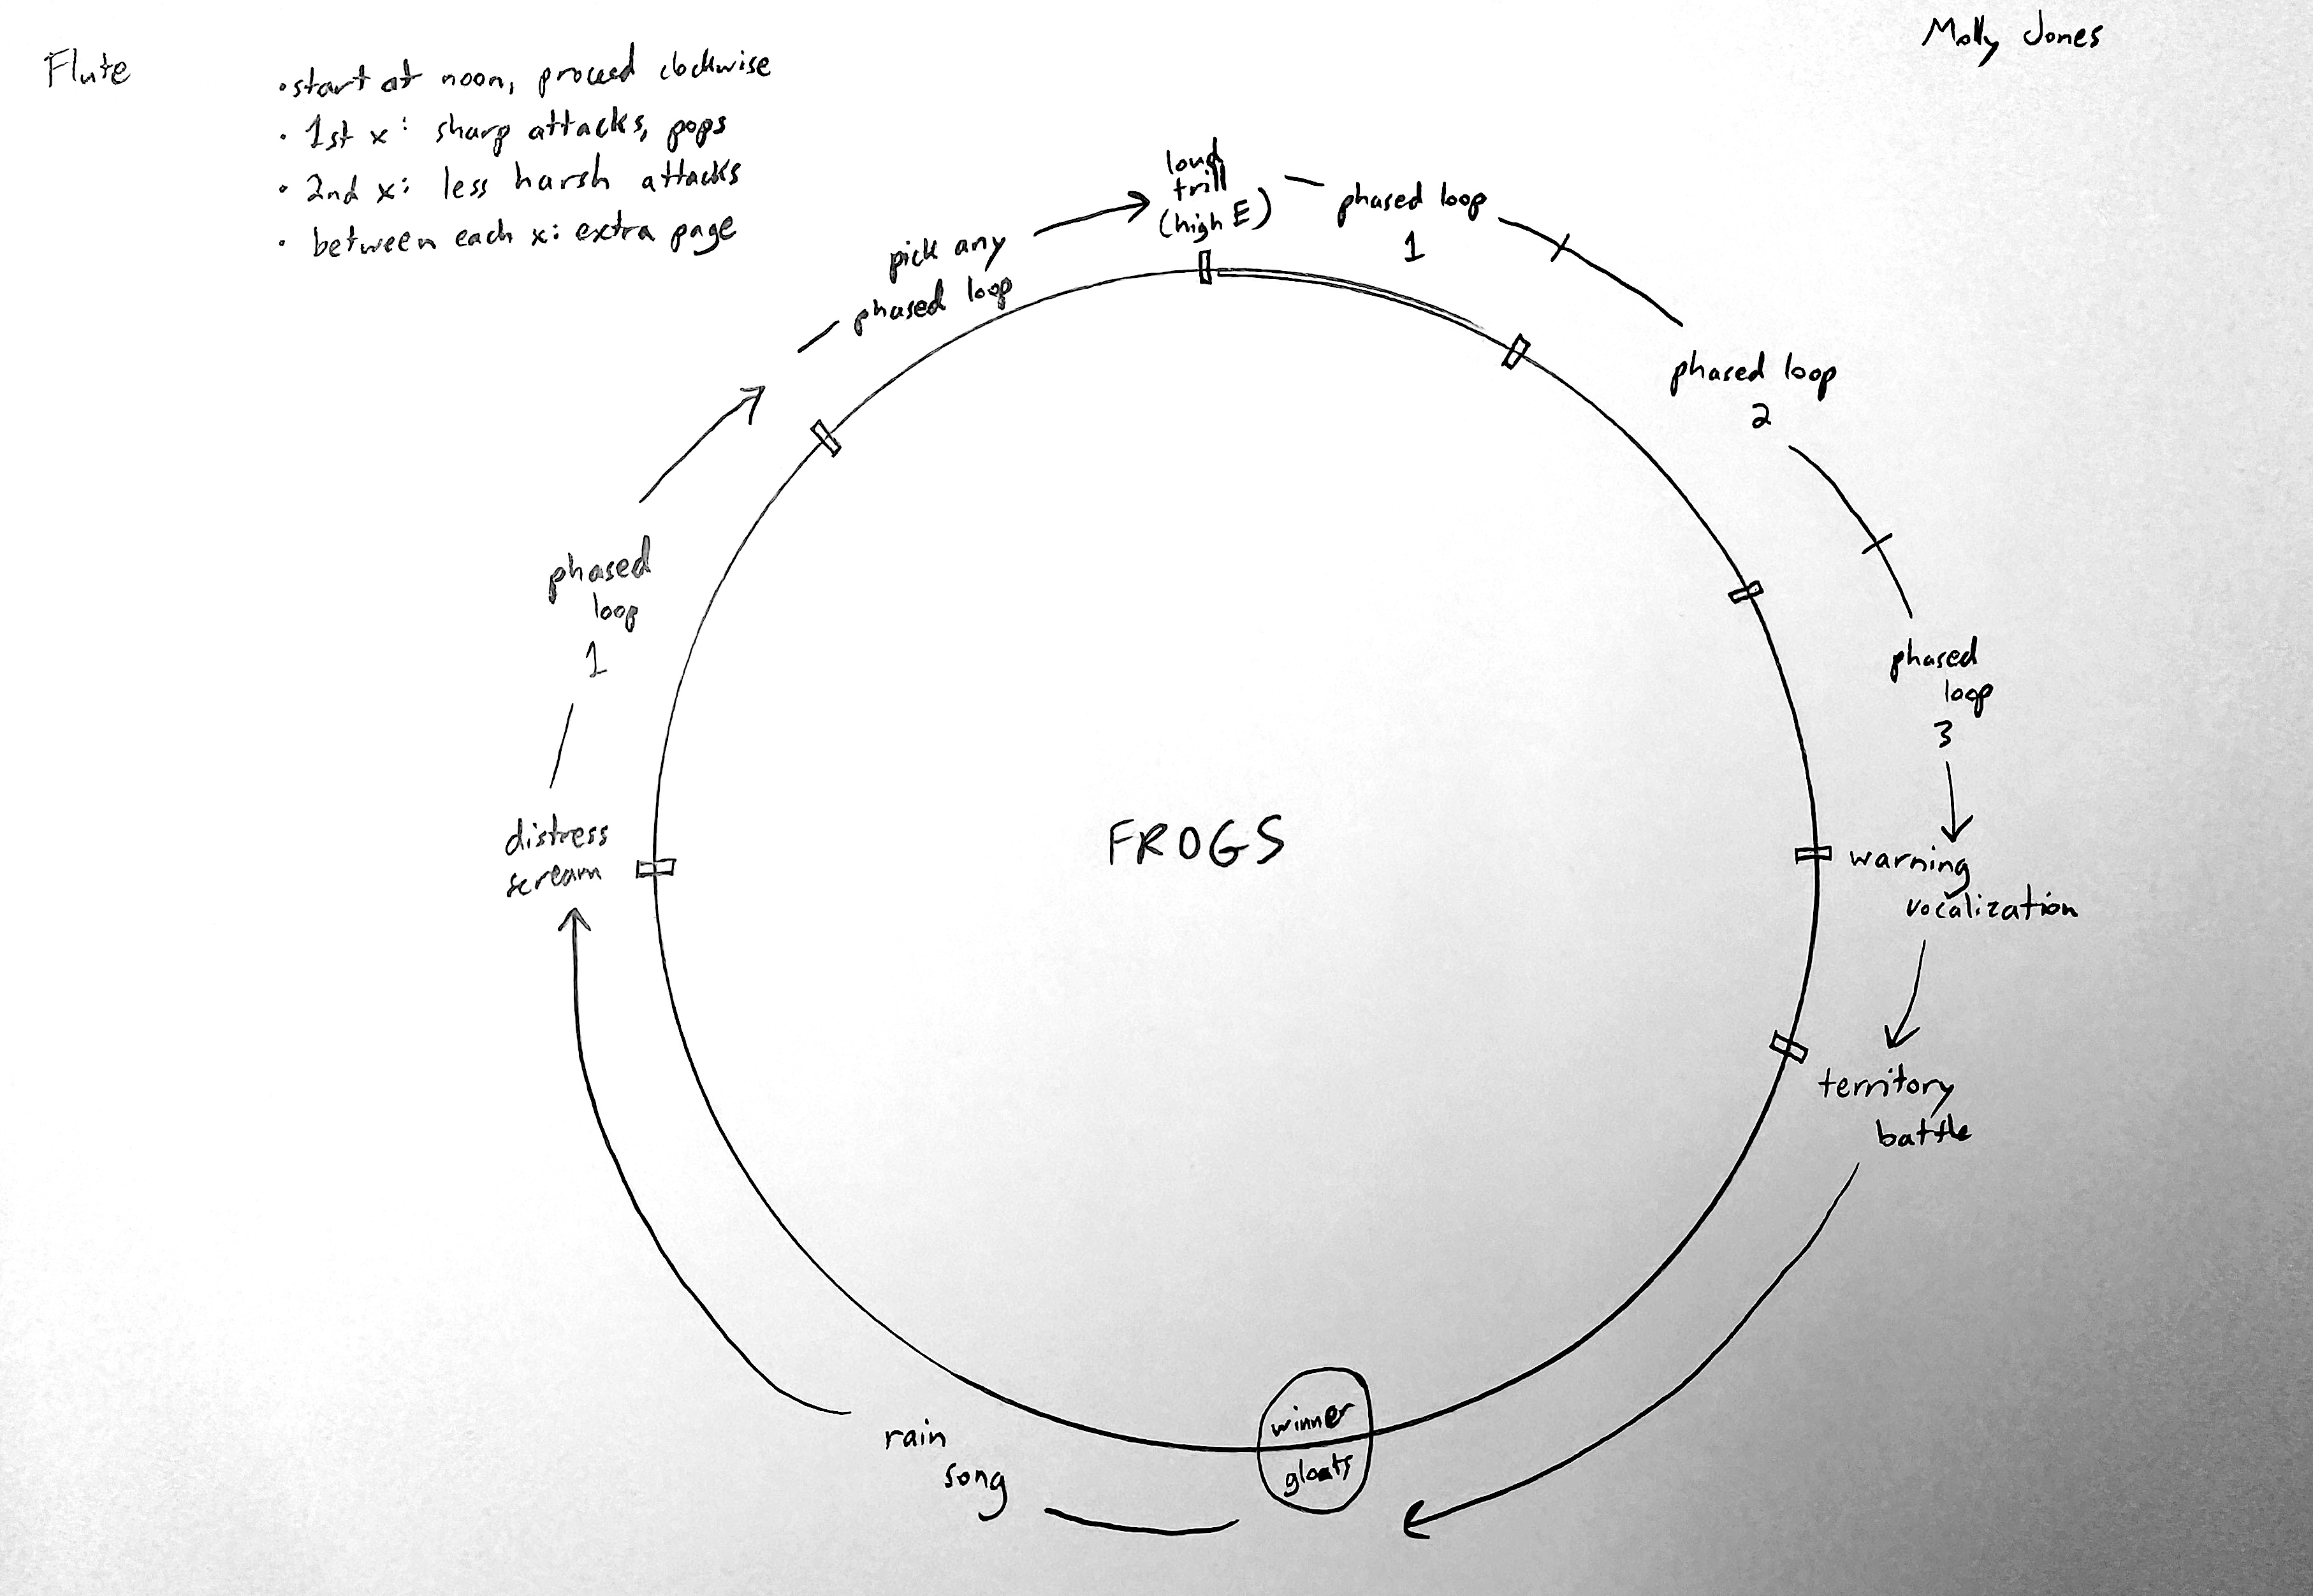 Flute
Molly Jones
• start at noon, proceed clockwise
• 1st x: sharp attacks, pops
• 2nd x: less harsh attacks
• between each x: extra page
loud
trill
(high E)
phased loop
1
phased loop
2
phased
loop
3
warning
vocalization
territory
battle
winner
gloats
rain
song
distress
scream
phased
loop
1
pick any
phased loop
FROGS